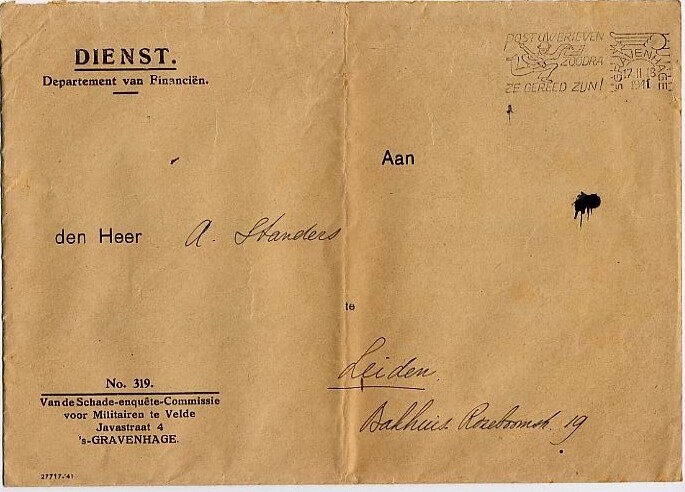 DIENST.
Departement van Financiën.
POST UW BRIEVEN
ZOODRA
ZE GEREED ZIJN!
'S GRAVENHAGE
17 II 18
1941
Aan
den Heer A. Standers
te
Leiden.
Bakhuis Rooseboomstr. 19
No. 319.
Van de Schade-enquête-Commissie
voor Militairen te Velde
Javastraat 4
's-GRAVENHAGE.
27717-'41